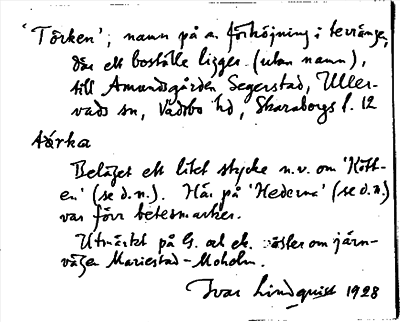 'Torken'; namn på en förhöjning i terrängen,
där ett boställe ligger (utan namn),
till Amundsgården Segerstad, Uller-
vads sn, Vadsbo hd, Skaraborgs l. 12
tɔ́rka
Beläget ett litet stycke n.v. om 'Kött-
en' (se d.n.). Här på 'Hederna' (se d.n.)
var förr betesmarker.
Utmärkt på G. al ek. väster om järn-
vägen Mariestad–Moholm.
Ivar Lindquist 1928